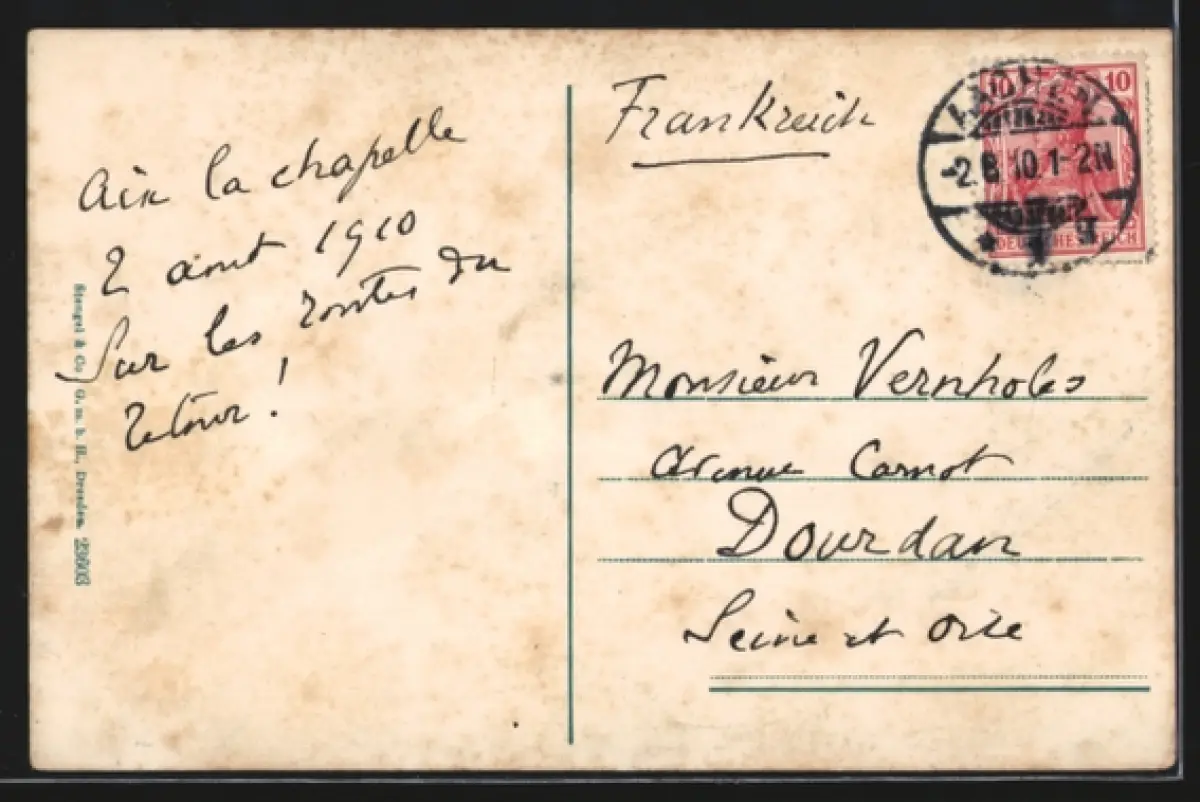 Aix la chapelle
2 aout 1910
Sur les routes du
retour !
Stengel & Co. G. m. b. H., Dresden. 23603
Frankreich
10 10
AACHEN
-2.8.10.1-2N
* 1 g
DEUTSCHES REICH
Monsieur Vernholes
avenue Carnot
Dourdan
Seine et Oise